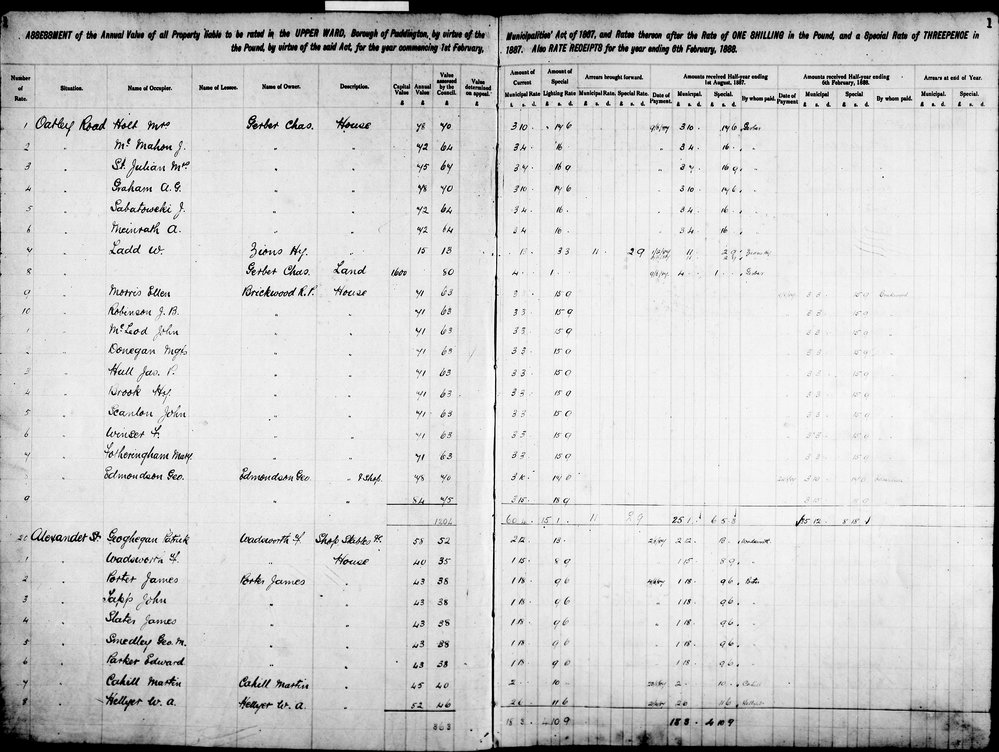 1 1
ASSESSMENT of the Annual Value of all Property liable to be rated in the UPPER WARD, Borough of Paddington, by virtue of the Municipalities' Act of 1867, and Rates thereon after the Rate of ONE SHILLING in the Pound, and a Special Rate of THREEPENCE in
the Pound, by virtue of the said Act, for the year commencing 1st February, 1887. Also RATE RECEIPTS for the year ending 6th February, 1888.
Number of Rate. Situation. Name of Occupier. Name of Lessee. Name of Owner. Description. Capital Value £ Annual Value £ Value assessed by the Council. £ Value determined on appeal. £ Amount of Current Municipal Rate £ s. d. Amount of Special Lighting Rate £ s. d. Arrears brought forward. Municipal Rate. £ s. d. Special Rate. £ s. d. Date of Payment. Amounts received Half-year ending 1st August, 1887. Municipal. £ s. d. Special. £ s. d. By whom paid. Date of Payment Amounts received Half-year ending 6th February, 1888. Municipal £ s. d. Special £ s. d. By whom paid Arrears at End of Year. Municipal. £ s. d. Special. £ s. d.
1 Oatley Road Holt Mrs Gerber Chas. House 78 70 3 10 . 14 6 3 10 . 14 6 Gerber
2 " Mc Mahon J. " " 72 64 3 4 . 16 . " 3 4 . 16 . "
3 " St. Julian Mrs " " 75 67 3 7 . 16 9 " 3 7 . 16 9 "
4 " Graham A. G. " " 78 70 3 10 . 14 6 " 3 10 . 14 6 "
5 " Sabatowski J. " " 72 64 3 4 . 16 . " 3 4 . 16 . "
6 " Meinrath A. " " 72 64 3 4 . 16 . " 3 4 . 16 .
7 " Ladd W. Zions Hy. " 15 13 13 . 3 3 11 2 9 11 2 9 Zions Hy
8 " Gerber Chas. Land 1600 80 4 . 1 . 4 . 1 . Gerber
9 " Morris Ellen Brickwood R. P. House 71 63 3 3 . 15 9 3 3 . 15 9 Brickwood
10 " Robinson J. B. " " 71 63 3 3 . 15 9 3 3 . 15 9
1 " McLeod John " " 71 63 3 3 . 15 9 3 3 . 15 9
" " Donegan Mgts " " 71 63 3 3 . 15 9 3 3 . 15 9
3 " Hull Jas. P. " " 71 63 3 3 . 15 9 3 3 . 15 9
4 " Brook Hy. " " 71 63 3 3 . 15 9 3 3 . 15 9
5 " Scanlon John " " 71 63 3 3 . 15 9 3 3 . 15 9
6 " Winser F. " " 71 63 3 3 . 15 9 3 3 . 15 9
7 " Fotheringham Mary " " 71 63 3 3 . 15 9 3 3 . 15 9
" Edmondson Geo. Edmondson Geo. " & Shop 78 70 3 10 3 10
9 " " " 84 75 3 15 . 18 9 3 15 18 9
1204 60 4 . 15 1 . 11 2 9 25 1 . 6 5 3 35 12 . 8 18
20 Alexander St. Geoghegan Patrick Wadsworth F. Shop Stables &c. 58 52 2 12 . 13 . 2 12 . 13 . Wadsworth
1 " Wadsworth F. " House 40 35 1 15 . 8 9 1 15 . 8 9
2 " Porter James Porter James " 43 38 1 18 . 9 6 1 18 . 9 6 Porter
3 " Tapp John " " 43 38 1 18 . 9 6 " 1 18 . 9 6 "
4 " Slater James " " 43 38 1 18 . 9 6 " 1 18 . 9 6 "
5 " Smedley Geo. M. " " 43 38 1 18 . 9 6 " 1 18 . 9 6 "
6 " Parker Edward " " 43 38 1 18 . 9 6 " 1 18 . 9 6 "
7 " Cahill Martin Cahill Martin " 45 40 2 . . 10 . 2 . . 10 . Cahill
8 " Hellyer W. A. Hellyer W. A. " 52 46 2 6 . 11 6 2 6 11 6 Hellyer
363 18 3 . 4 10 9 18 3 . 4 10 9